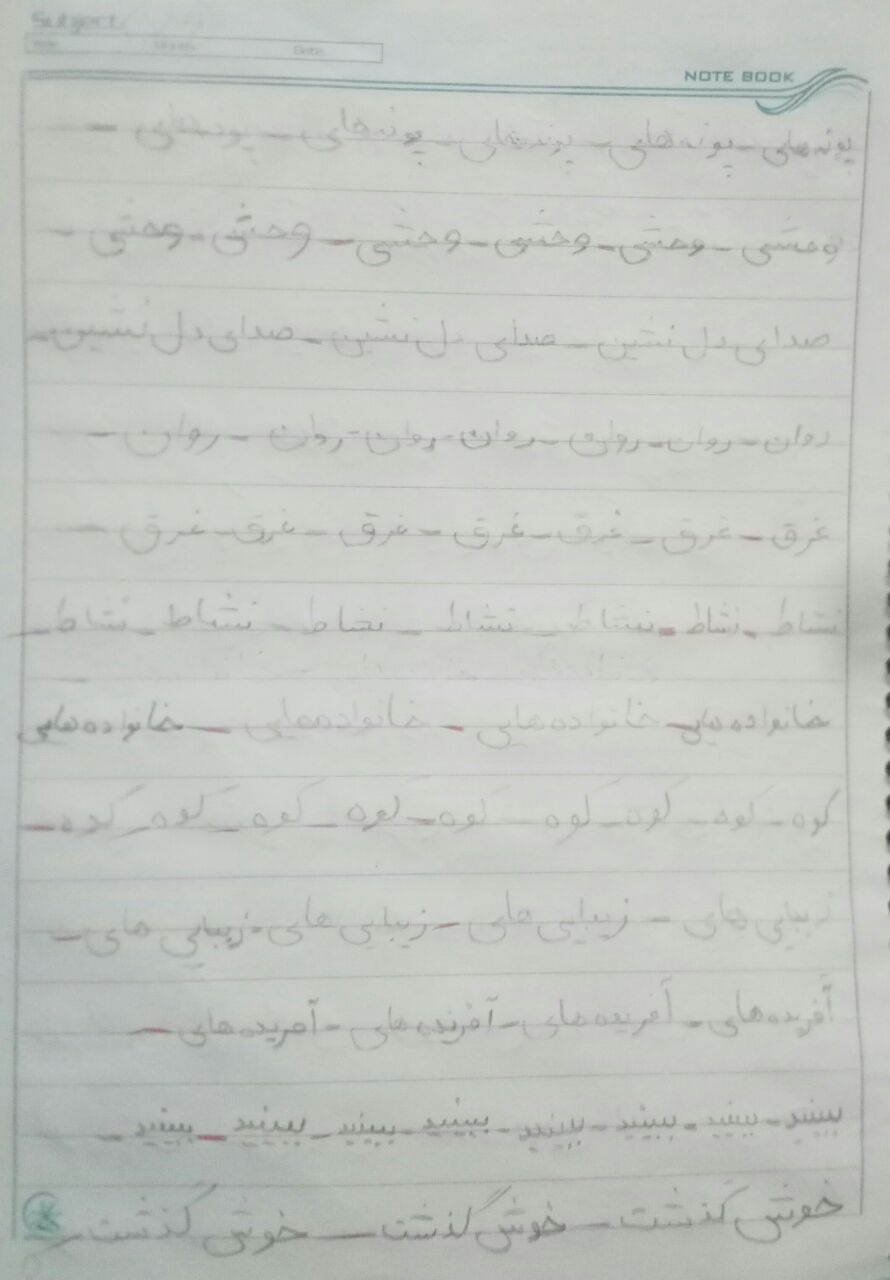 Subject:
Date:
NOTE BOOK
پونه‌های - پونه‌های - پونه‌های - پونه‌های - پونه‌های -
وحشی - وحشی - وحشی - وحشی - وحشی - وحشی -
صدای دل نشین - صدای دل نشین - صدای دل نشین -
روان - روان - روان - روان - روان - روان - روان -
غرق - غرق - غرق - غرق - غرق - غرق - غرق -
نشاط - نشاط - نشاط - نشاط - نشاط - نشاط - نشاط -
خانواده‌هایی - خانواده‌هایی - خانواده‌هایی - خانواده‌هایی
کوه - کوه - کوه - کوه کوه - کوه - کوه - کوه - کوه -
زیبایی های - زیبایی های - زیبایی های - زیبایی های -
آفریده‌های - آفریده‌های - آفرنیده‌های - آفریده‌های -
ببینید - ببینید - ببینید - ببینید - ببینید - ببینید - ببینید - ببینید -
خوش گذشت - خوش گذشت - خوش گذشت -